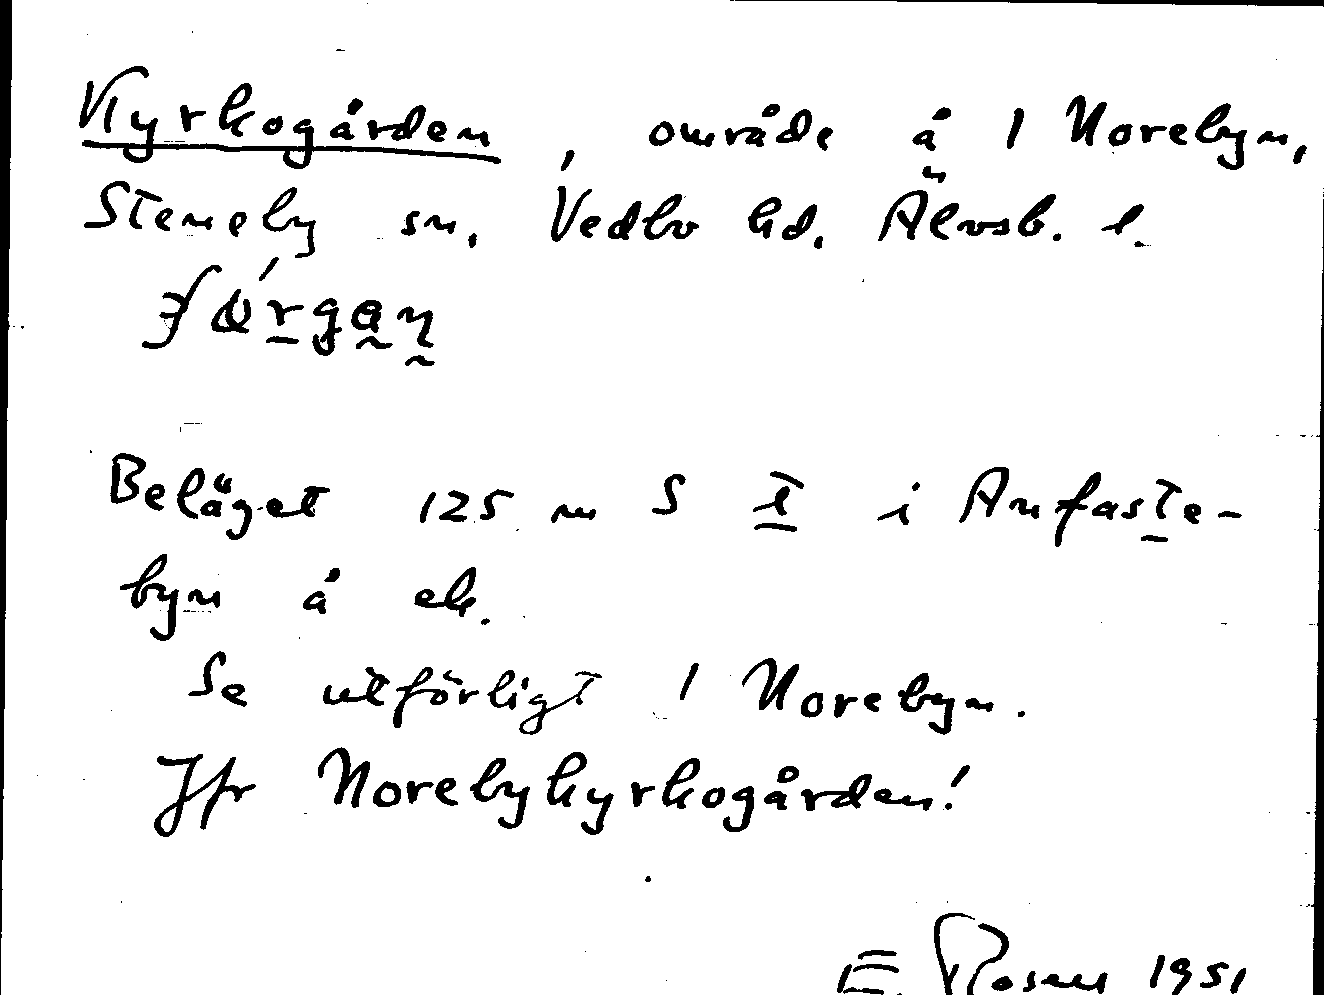 Kyrkogården, område å 1 Norebyn,
Steneby sn, Vedbo hd. Älvsb. l.
Beläget 125 m S t i Anfaste-
byn å ek.
Se utförligt 1 Norebyn.
Jfr Norebykyrkogården!
E. Rosen 1951